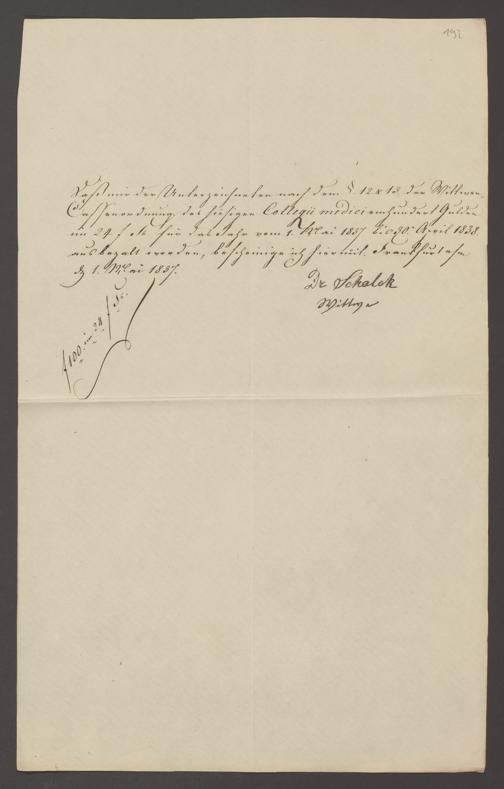 192
Daß mir der Unterzeichneten nach dem § 12 & 13. der Wittwen-
Cassenordnung des hiesigen Collegii medici einhundert Gulden
im 24 f. für das Jahr vom 1. Mai 1837 bis 30. April 1838.
ausbezalt worden, bescheinige ich hiermit. Frankfurt a/m
d. 1. Mai 1837.
Dr Schalck
Wittwe
f 100 im 24 f